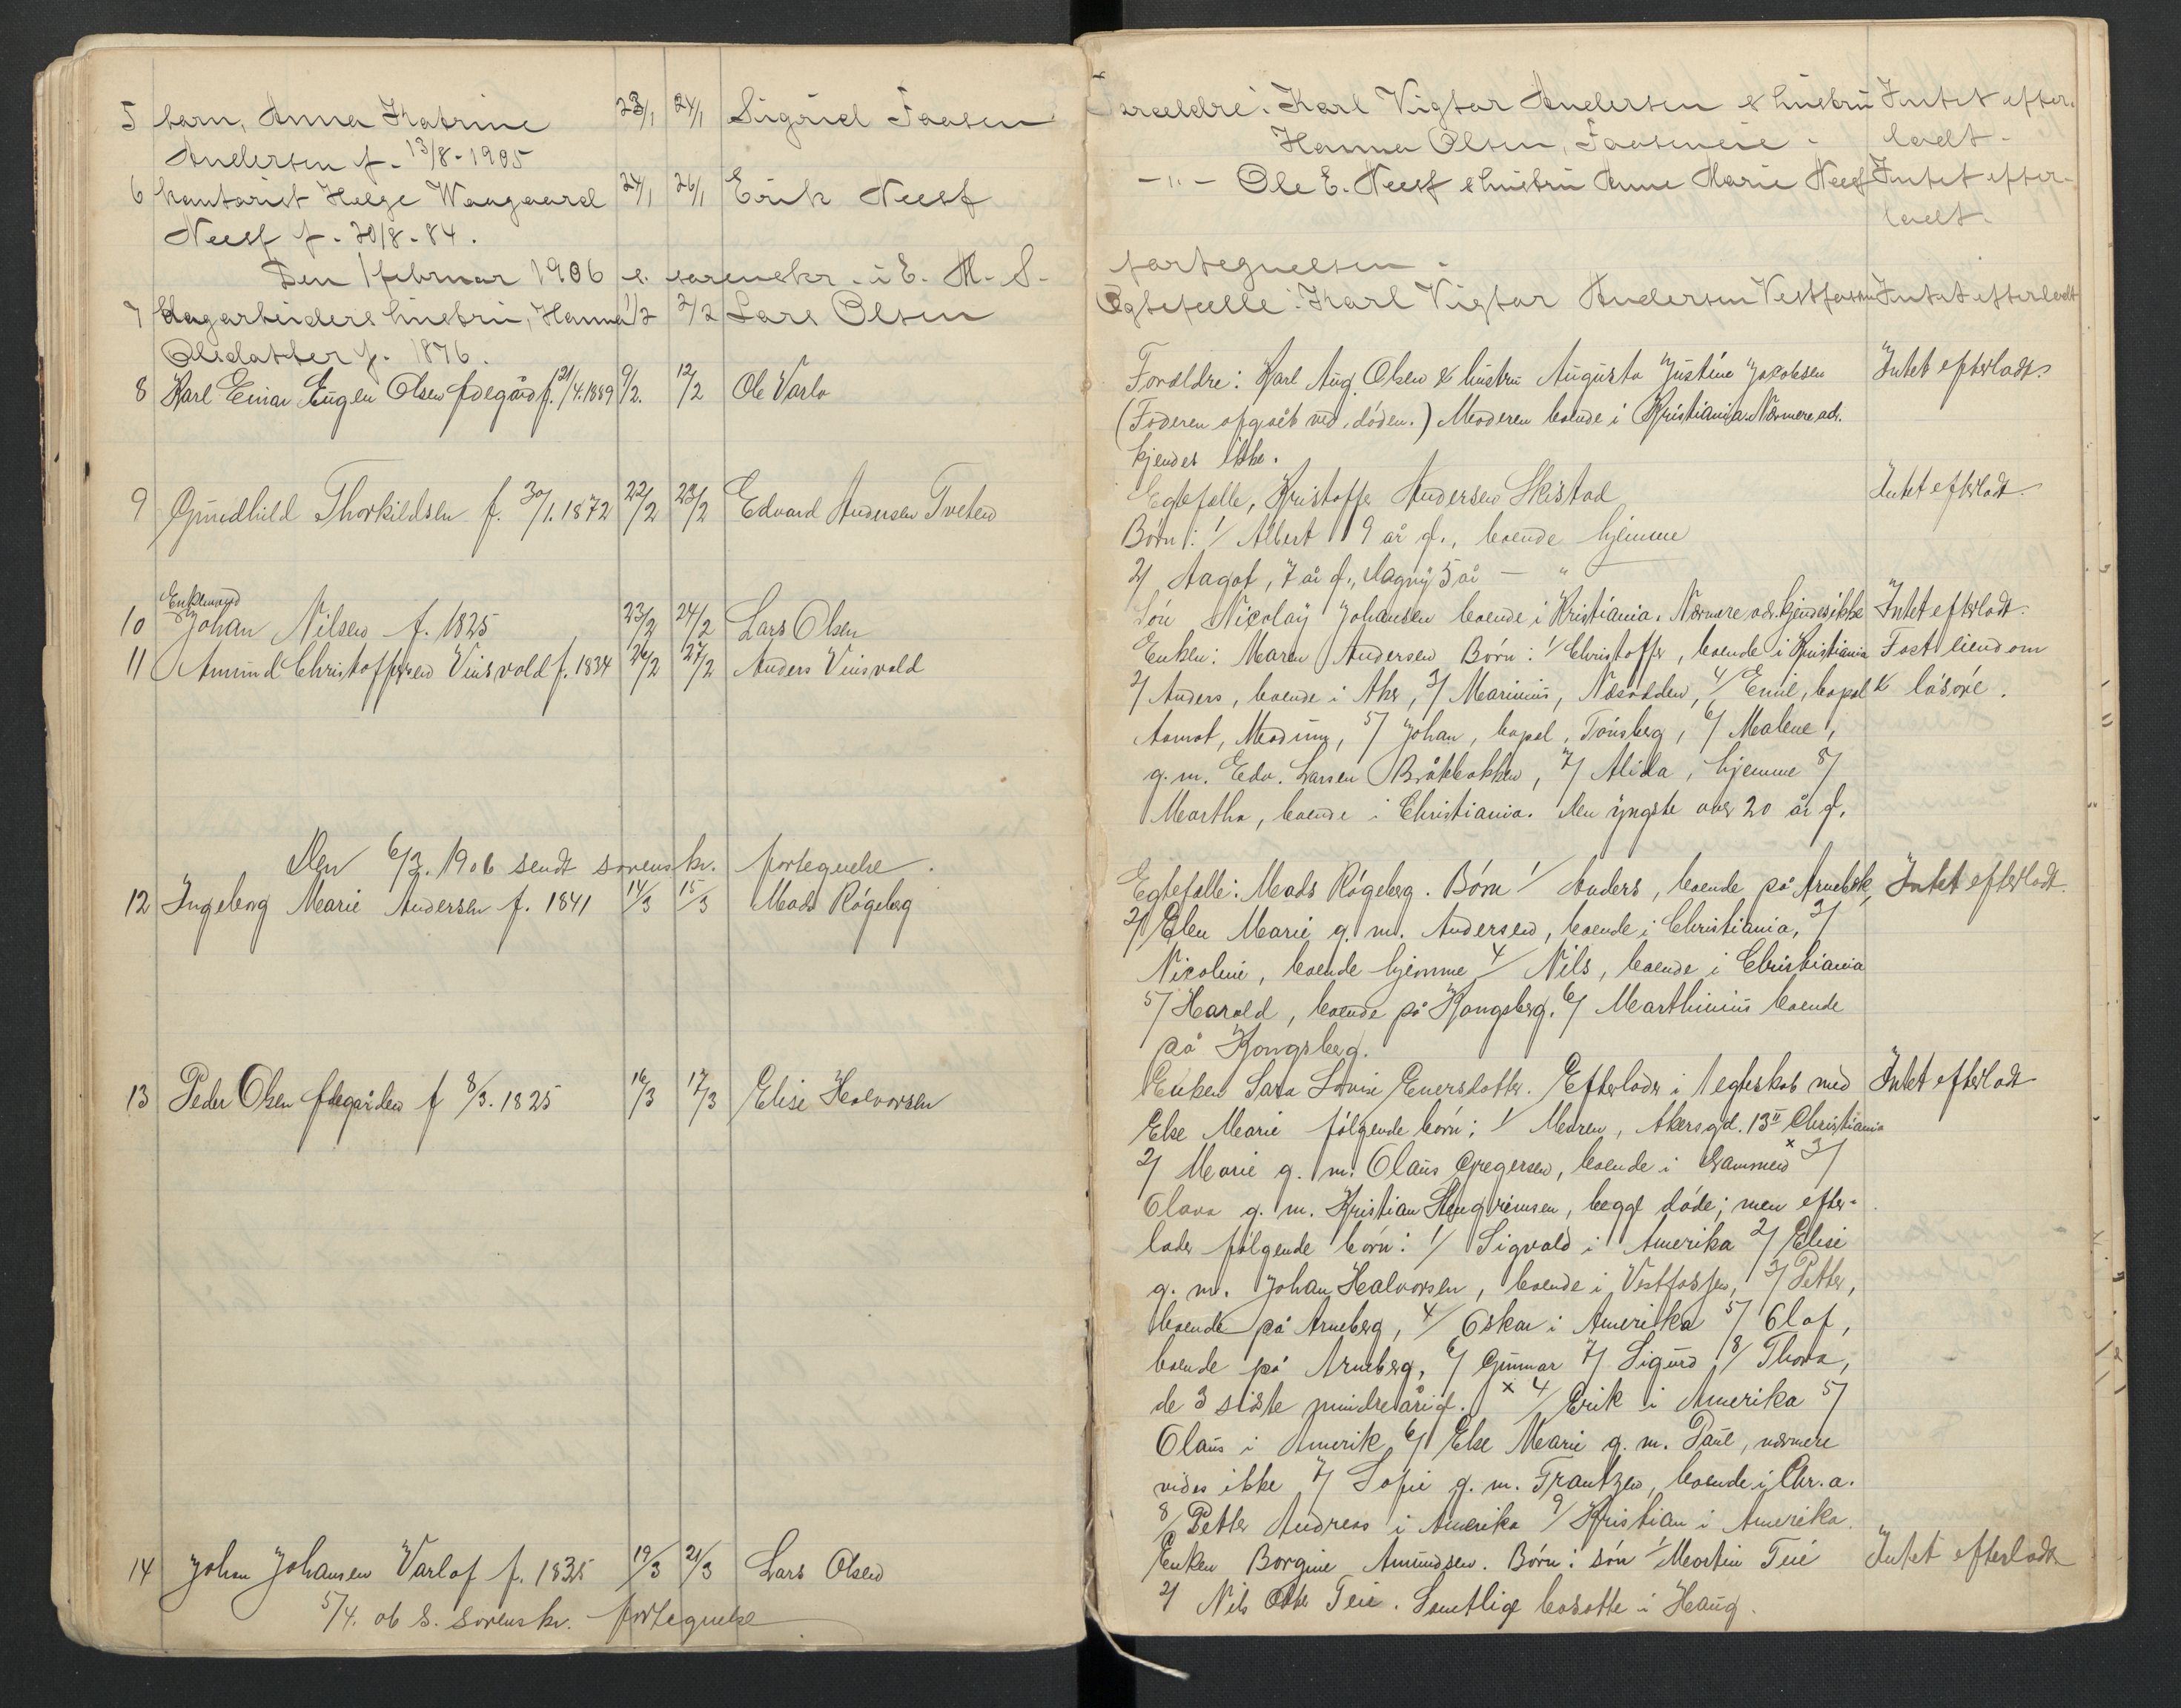 5 barn, Anna Katrine 23/1 24/1 Sigrid Faasen
Andersen f. 13/8-1905
6 kontorist Helge Waagaard 24/1 26/1 Erik Neesf
Neesf f. 20/8-84.
Den 1 februar 1906 s. sorenskr. i E. M. S.
7 dagarbeiders hustru, Hanna 1/2 2/2 Lars Olsen
Olsdatter f. 1876.
8 Karl Einar Eugen Olsen Ødegård f. 21/4.1889 9/2. 12/2 Ole Varlo
9 Gundhild Thorkildsen f. 30/1.1872 22/2 23/2 Edvard Andersen Tveten
Enkemand
10 Johan Nilsen f. 1825 23/2 24/2 Lars Olsen
11 Amund Christoffersen Vinsvold f. 1834 26/2 27/2 Anders Vinsvold
Den 6/3. 1906 sendt sorenskr. fortegnelse.
12 Ingeborg Marie Andersen f. 1841 14/3 15/3 Mads Rógeberg
13 Peder Olsen Ødegården f 8/3. 1825 16/3 17/3 Elise Halvorsen
14 Johan Johansen Varlof f. 1835 19/3 21/3 Lars Olsen
5/4. ob S. Sorenskr. fortegnelse
Forældre: Karl Vigtor Andersen & hustru Intet efter-
Hanna Olsen, Faaseneie - ladt.
-"- Ole E. Neesf & hustru Anne Marie Neesf Intet efter-
ladt.
fortegnelsen.
Ægtefælle: Karl Vigtor Andersen Vestfossen Intet efterladt
Foreldre: Karl Aug. Olsen & hustru Augusta Justine Jacobsen Intet efterladt.
(Faderen afgaět ved døden.) Moderen boende i Kristiania. Nærmere ad.
kjendes ikke.
Egtefelle, Kristoffer Andersen Skistad Intet efterladt.
Børn: 1/ Albert 9 år gl., boende hjemme
2/ Aagot, 7 år gl., Dagny 5 år - "
Søn Nicolay Johansen boende i Kristiania. Nærmere adr. kjendes ikke Intet efterladt.
Enken: Maren Andersen Børn: 1/ Christoffer, boende i Kristiania Fast eiendom
2/ Anders, boende i Aker, 3/ Marinius, Næsodden, 4/ Emil, bopæl & løsøre.
Aamot, Modum, 5/ Johan, bopæl, Tønsberg, 6/ Malene,
g. m. Edv. Larsen Bråkbakken, 7/ Alida, hjemme 8/
Martha, boende i Christiania. Den yngste over 20 år gl.
Egtefelle: Mads Rógeberg. Børn 1/ Anders, boende på Arnebek, Intet efterladt.
2/ Elen Marie g. m. Andersen, boende i Christiania, 3/
Nicoline, boende hjemme 4/ Nils, boende i Christiania
5/ Harald, boende på Kongsberg. 6/ Marthinius boende
på Kongsberg.
Enken Sara Lovise Enersdatter. Efterlader i 1 egteskab med Intet efterladt
Else Marie følgende børn: 1/ Maren, Akersgd. 13 II Christiania
2/ Marie g. m. Olaus Gregersen, boende i Drammen x 3/
Olava g. m. Kristian Hengrimsen, begge døde; men efter-
lader følgende børn: 1/ Sigvald i Amerika 2/ Elise
g. m. Johan Halvorsen, boende i Vestfossen, 3/ Petter,
boende på Arneberg, 4/ Oskar i Amerika 5/ Olaf,
boende på Arneberg, 6/ Gunnar 7/ Sigurd 8/ Thora,
de 3 siste mindreårige. x 4/ Erik i Amerika 5/
Olaus i Amerik 6/ Else Marie g. m. Paul, nærmere
vides ikke 7/ Sofie g. m. Frantzen, boende i Chr.a.
8/ Petter Andreas i Amerika 9/ Kristian i Amerika.
Enken Borgine Amundsen. Børn: søn 1/ Martin Teie Intet efterladt
2/ Nils Otto Teie. Samtlige bosatte i Haug.